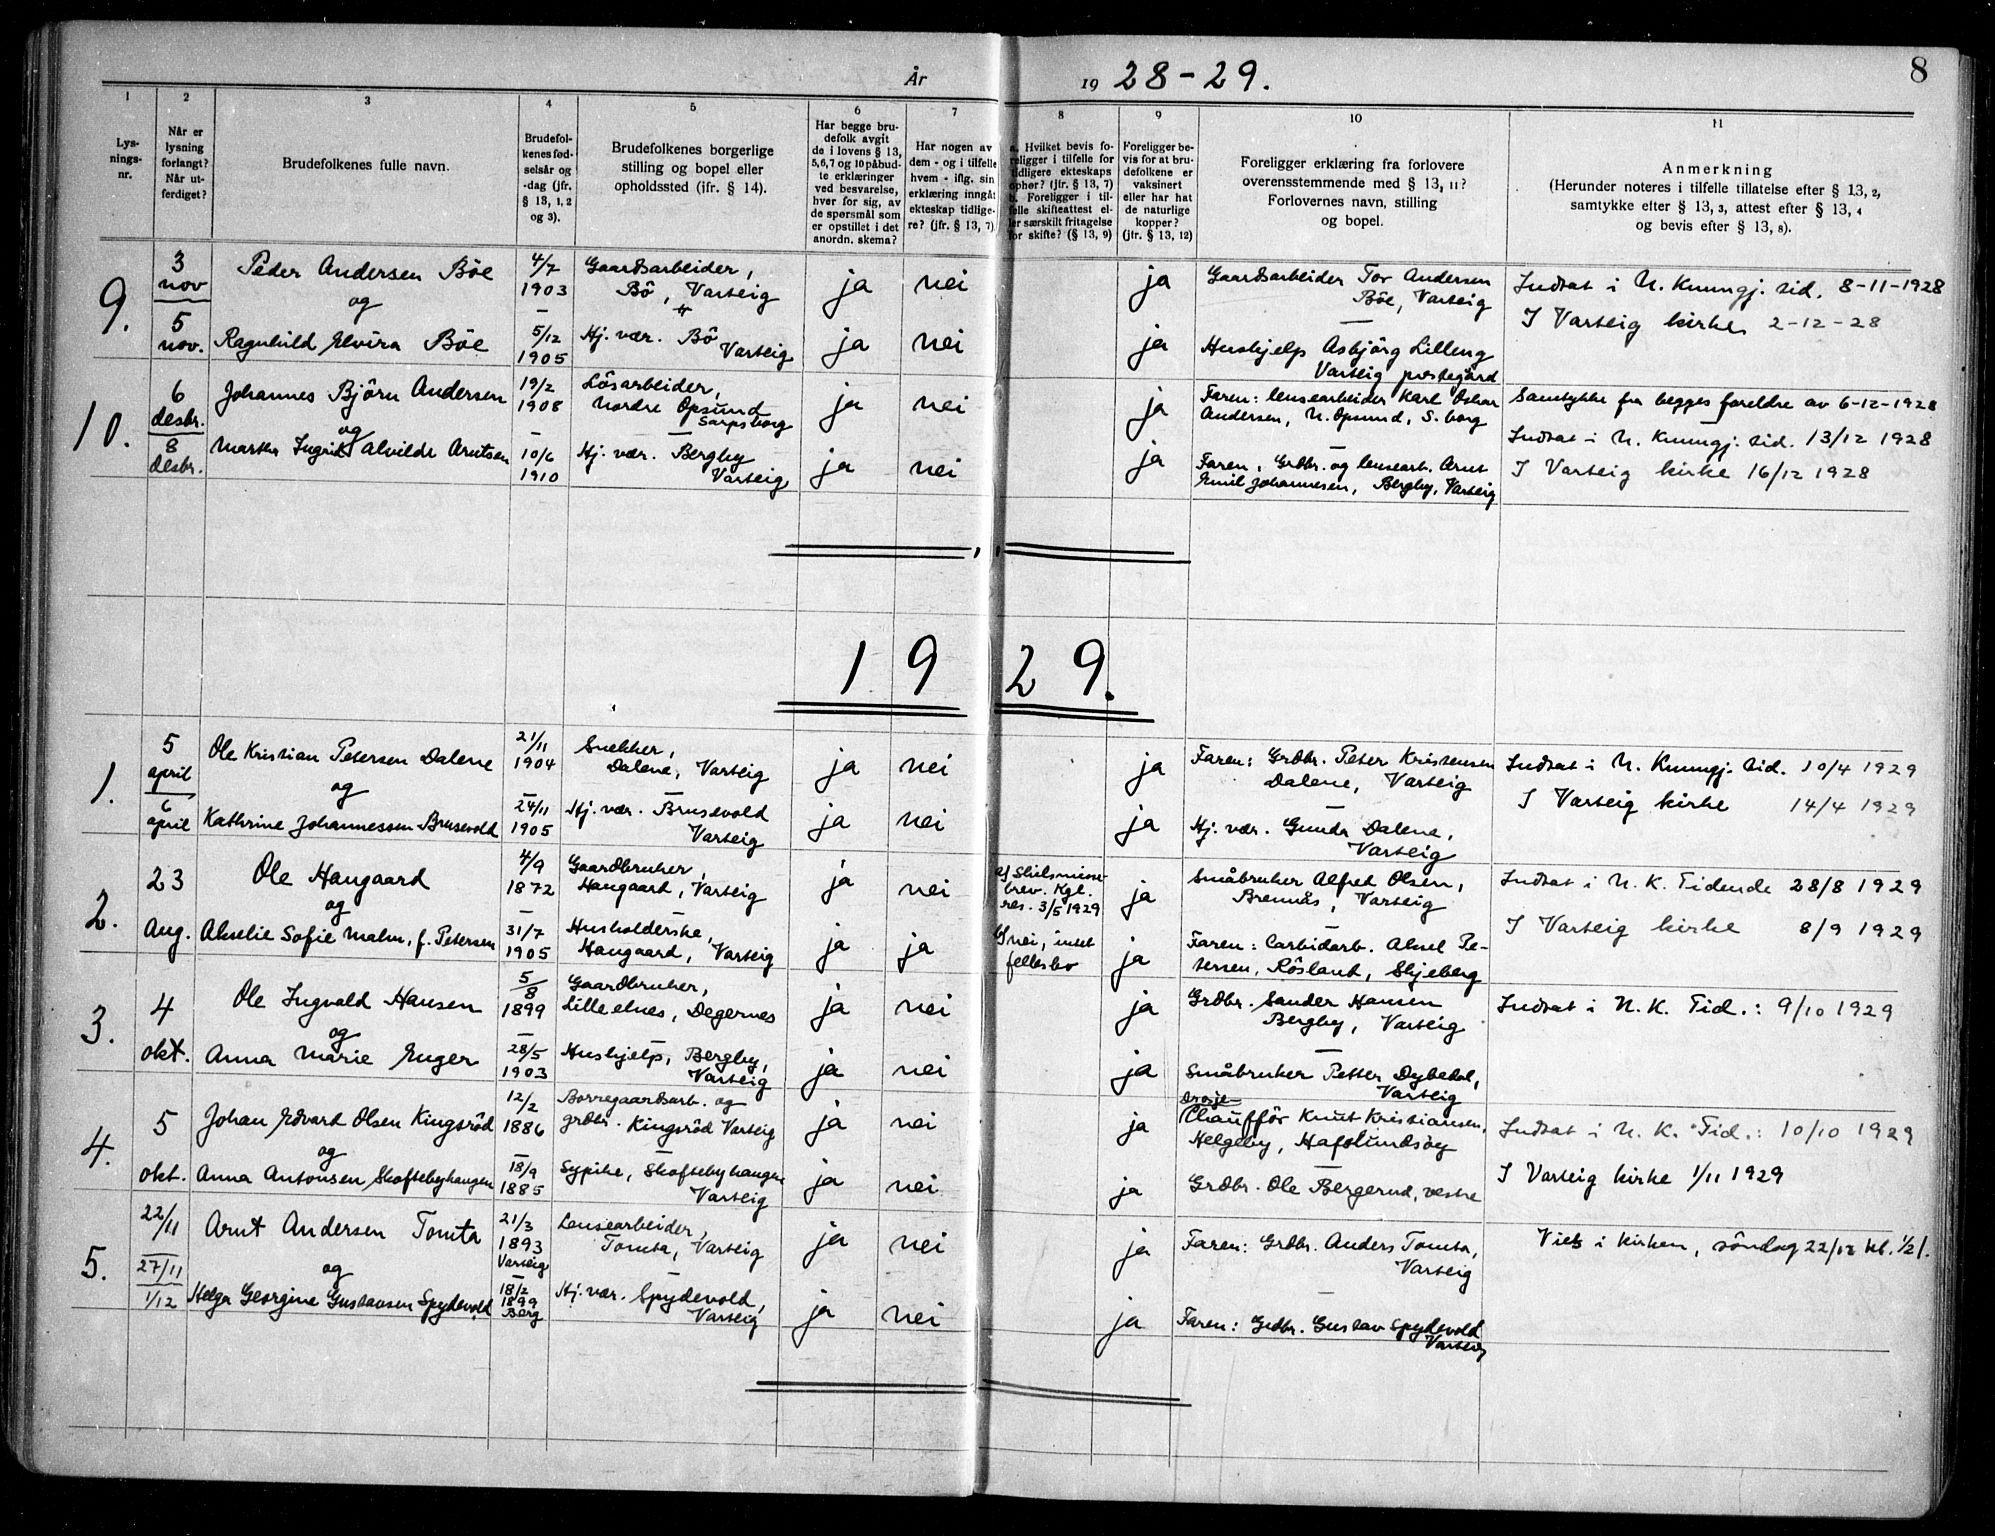 År 19 28-29.
8
1 2 3 4 5 6 7 8 9 10 11
Lys-
nings-
nr.
Når er
lysning
forlangt?
Når ut-
ferdiget?
Brudefolkenes fulle navn.
Brudefol-
kenes fød-
selsår og
-dag (jfr.
§ 13, 1, 2
og 3).
Brudefolkenes borgerlige
stilling og bopel eller
opholdssted (jfr. § 14).
Har begge bru-
defolk avgit
de i lovens § 13,
5,6,7 og 10 påbud-
te erklæringer
ved besvarelse,
hver for sig, av
de spørsmål som
er opstillet i det
anordn. skema?
Har nogen av
dem - og i tilfelle
hvem - iflg. sin
erklæring inngått
ekteskap tidlige-
re? (jfr. § 13, 7)
a. Hvilket bevis fo-
religger i tilfelle for
tidligere ekteskaps
ophør? (jfr. § 13, 7)
b. Foreligger i til-
felle skifteattest el-
ler særskilt fritagelse
for skifte? (§ 13, 9)
Foreligger be-
vis for at bru-
defolkene er
vaksinert
eller har hat
de naturlige
kopper?
(jfr. § 13, 12)
Foreligger erklæring fra forlovere
overensstemmende med § 13, 11?
Forlovernes navn, stilling
og bopel.
Anmerkning
(Herunder noteres i tilfelle tillatelse efter § 13, 2,
samtykke efter § 13, 3, attest efter § 13, 4
og bevis efter § 13, 8).
9.
3
nov
5
nov.
Peder Andersen Böe
og
Ragnhild Elvira Böe
4/7
1903
5/12
1905
Gaardsarbeider,
Bö, Varteig
Hj. vær. Bö
Varteig
ja nei
ja nei
ja
ja
Gaardsarbeider Tor Andersen
Böe, Varteig
Hushjelp Asbjörg Lilleng
Varteig prestegård
Indsat i N. Kunngj. tid. 8-11-1928
I Varteig kirke 2-12-28
10.
6
desbr.
8
desbr.
Johannes Björn Andersen
og
Martha Ingrid Alvilde Arntsen
19/2
1908
10/6
1910
Lösarbeider,
Nordre Opsund
Sarpsborg
Hj. vær. Bergby
Varteig
ja nei
ja nei
ja
ja
Faren: lensearbeider Karl Oskar
Andersen, N. Opsund, S.borg
Faren, Grdbr. og lensearb. Arnt
Emil Johannesen, Bergby, Varteig
Samtykke fra begges foreldre av 6-12-1928
Indsat i N. Kunngj. tid. 13/12 1928
I Varteig kirke 16/12 1928
1929.
1.
5
april
6
april
Ole Kristian Petersen Dalene
og
Kathrine Johannessen Brusevold
21/11
1904
24/11
1905
Snekker,
Dalene, Varteig
Hj. vær. Brusevold
Varteig
ja nei
ja nei
ja
ja
Faren: Grdbr. Peter Kristensen
Dalene, Varteig
Hj. vær. Gunda Dalene,
Varteig
Indsat i N. Kunngj. tid. 10/4 1929
I Varteig kirke 14/4 1929
2.
23
Aug.
Ole Haugaard
og
Akselie Sofie Malm, f. Petersen
4/9
1872
31/7
1905
Gaardbruker,
Haugaard, Varteig
Husholderske,
Haugaard, Varteig
ja nei
ja ja
a) Skilsmisse
brev. Kgl.
res. 3/5 1929
b) nei, intet
fellesbo
ja
ja
Småbruker Alfred Olsen,
Brennås, Varteig
Faren: Carbidarb. Aksel Pe-
tersen, Rösland, Skjeberg
Indsat i N. K. Tidende 28/8 1929
I Varteig kirke 8/9 1929
3.
4
okt.
Ole Ingvald Hansen
og
Anna Marie Enger
5/8
1899
28/5
1903
Gaardbruker,
Lille elnes, Degernes
Hushjelp, Bergby,
Varteig
ja nei
ja nei
ja
ja
Grdbr. Sander Hansen
Bergby, Varteig
Småbruker Petter Dybedal,
Varteig
Indsat i N. K. Tid.: 9/10 1929
4.
5
okt.
Johan Edvard Olsen Kingsröd
og
Anna Antonsen Skoftebyhaugen
12/2
1886
18/9
1885
Borregaardsarb. og
grdbr. Kingsröd Varteig
Sypike, Skoftebyhaugen
Varteig
ja nei
ja nei
ja
ja
drosje-
Chauffør Knut Kristiansen,
Helgeby, Hafslundsöy
Grdbr. Ole Bergerud, vestre
Indsat i N. K. Tid.: 10/10 1929
I Varteig kirke 1/11 1929
5.
22/11
27/11
1/12
Arnt Andersen Tomta
og
Helga Georgine Gustavsen Spydevold
21/3
1893
Varteig
18/2
1899
Berg
Lensearbeider,
Tomta, Varteig
Hj. vær. Spydevold,
Varteig
ja nei
ja nei
ja
ja
Faren: Grdbr. Anders Tomta,
Varteig
Faren: Grdbr. Gustav Spydevold
Varteig
Viet i kirken, söndag 22/12 kl. 1/2 1.